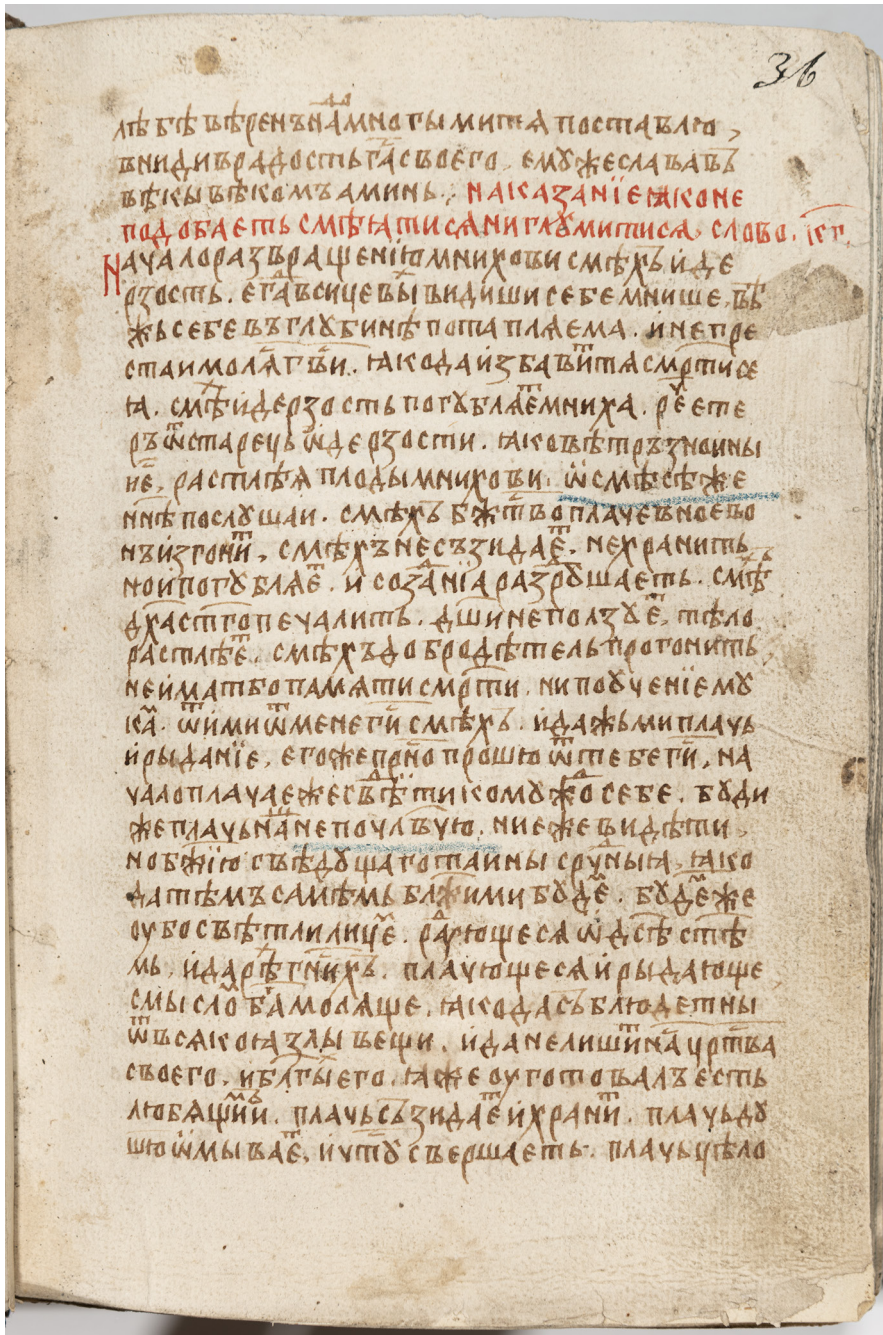 36
лѣ бѣ вѣренъ на́д многы ми тя поставлю,
вниди врадость га̃ своего. емуже слава въ
вѣкы вѣкомъ аминь. наказанїе ꙗко не
подобаеть смѣꙗтися ни глꙋмитися. слово. к҃г.
Начало развращенїю мнихови смѣхъ и де
рзость. егда всицевы видиши себе мнише, вѣ
жь себе въ глꙋбинѣ потапляема. и непре
стаи моля г҃ви. ꙗкода избавит тя см҃рти се
ꙗ. смѣх и дерзость погꙋбляет мниха. рече ете
ръ ѿ старець ѡ дерзости. ꙗко вѣтръ знойны
и е҃. растлѣя плоды мнихови. ѡ смѣсѣже
н҃нѣ послꙋшаи. смѣхъ бж҃тво плачевное во
нъ изгонит. смѣхъ не съзидает. не хранить
но и погꙋбляет. и созданїа разрꙋшаеть. смѣх
д҃ха ст҃го печалить. д҃ши неползꙋет, тѣло
растлѣет. смѣхъ добродѣтель прогонить
не имат бо памяти см҃рти. ни поꙋченїе мꙋ
кам. ѿими ѿ мене г҃и смѣхъ. и дажь ми плачь
и рыданїе, егоже пр҃но прошю ѿ тебе г҃и, на
чало плача еже свѣдѣти комꙋждо себе. бꙋди
же плачь нашь не по чл҃вѣкꙋ. ни еже видѣти
но бж҃їю свѣдꙋщаго тайны срдчныꙗ, ꙗко
да тѣмъ самѣмь бл҃жими бꙋдем. бꙋдемже
оубо свѣтли лицем. радꙋющеся ѡ дсѣ ст҃ѣ
мь, и дарѣх г҃нихъ. плачющеся и рыдающе
смыслом б҃а моляще. ꙗкода съблюдет ны
ѿ всякоꙗ злы вещи. и да не лишит нас цр҃тва
своего. и бл҃гых его. ꙗже оуготовалъ есть
любящим и. плачь съзидает и хранит. плачь дꙋ
шю ѡмывает, и ч҃тꙋ свершаеть. плачь цѣло